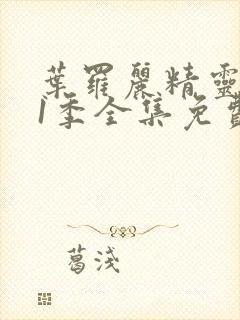 葉羅麗精靈
1季全集免費
葛淺